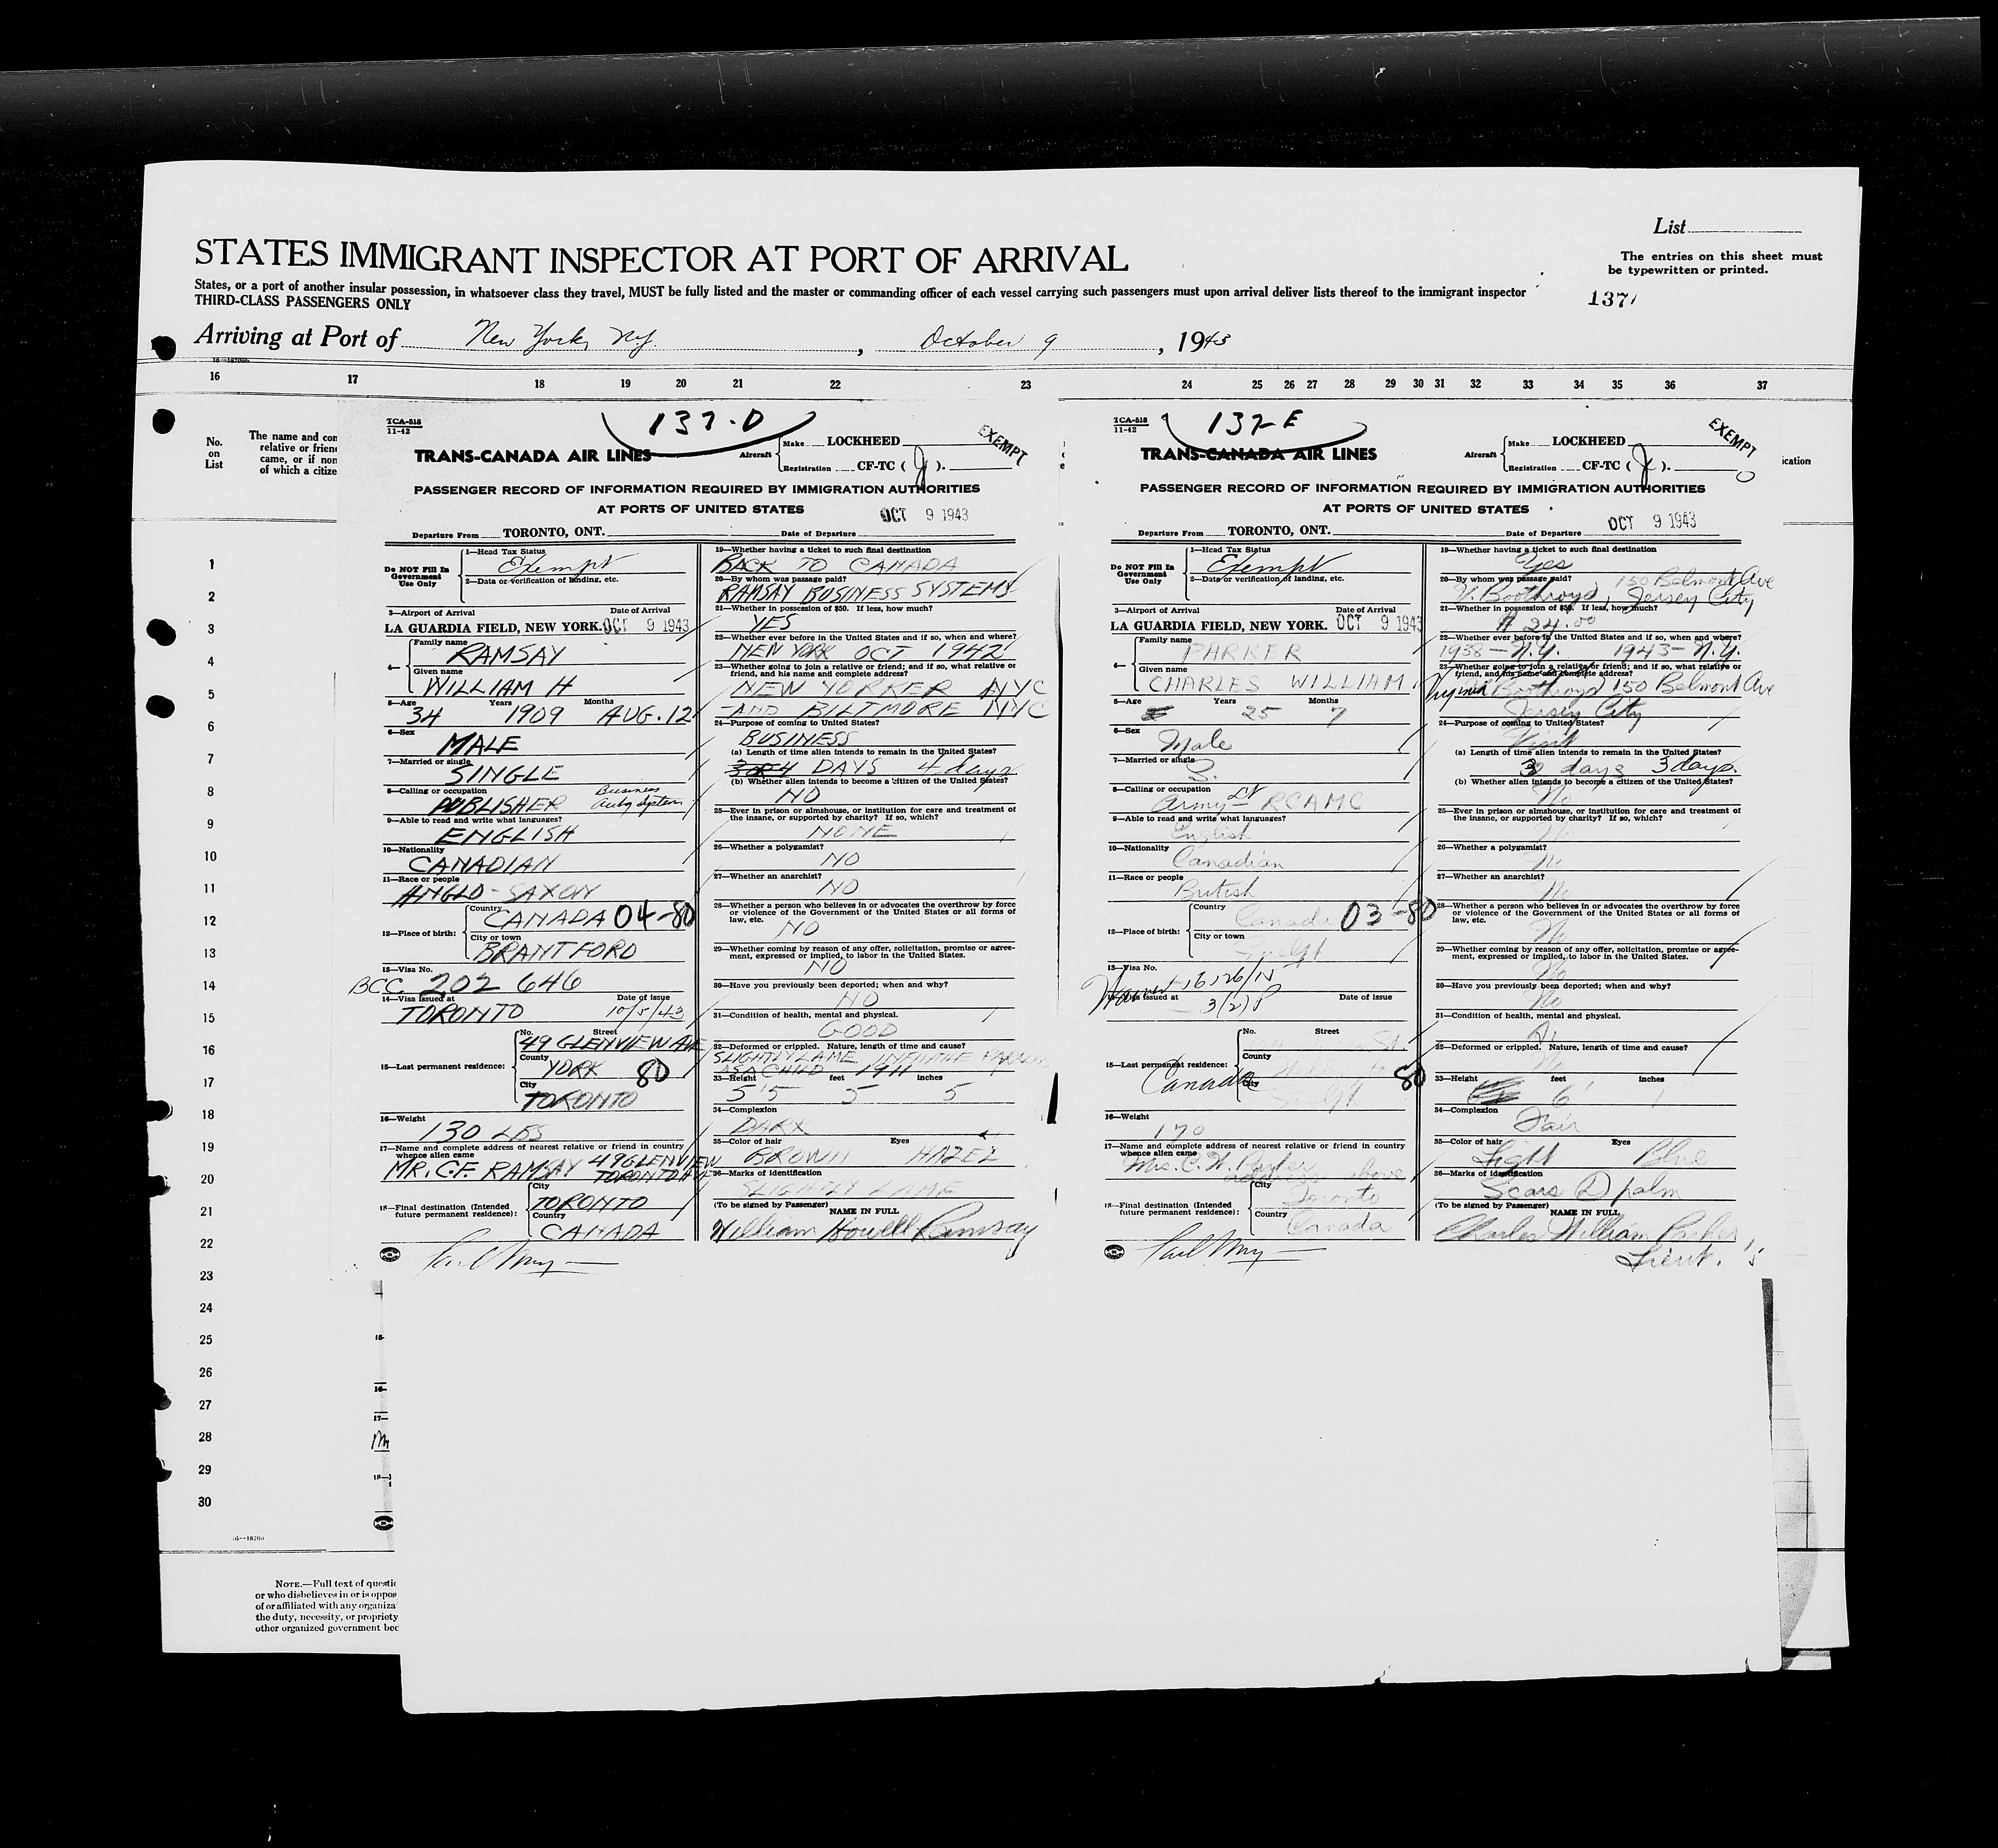 List
STATES IMMIGRANT INSPECTOR AT PORT OF ARRIVAL
The entries on this sheet must
be typewritten or printed.
States, or a port of another insular possession, in whatsoever class they travel, MUST be fully listed and the master or commanding officer of each vessel carrying such passengers must upon arrival deliver lists thereof to the immigrant inspector
THIRD-CLASS PASSENGERS ONLY
137
Arriving at Port of New York, N.Y. , October 9 , 1943
16 17 18 19 20 21 22 23 24 25 26 27 28 29 30 31 32 33 34 35 36 37
No.
on
List
The name and con
relative or friend
came, or if non
of which a citize
ication
1
2
3
4
5
6
7
8
9
10
11
12
13
14
15
16
17
18
19
20
21
22
23
24
25
26
27
28
29
30
TCA-518
11-42
137-D
EXEMPT
TRANS-CANADA AIR LINES
Aircraft
Make LOCKHEED
Registration CF-TC ( ).
PASSENGER RECORD OF INFORMATION REQUIRED BY IMMIGRATION AUTHORITIES
AT PORTS OF UNITED STATES
OCT 9 1943
Departure From TORONTO, ONT. Date of Departure
Do NOT Fill In
Government
Use Only
1—Head Tax Status
Exempt
2—Data or verification of landing, etc.
3—Airport of Arrival Date of Arrival
LA GUARDIA FIELD, NEW YORK. OCT 9 1943
4—
Family name
RAMSAY
Given name
WILLIAM H
5—Age Years Months
34 1909 AUG. 12
6—Sex
MALE
7—Married or single
SINGLE
8—Calling or occupation
PUBLISHER Business
9—Able to read and write what languages?
ENGLISH
10—Nationality
CANADIAN
11—Race or people
ANGLO-SAXON
12—Place of birth:
Country
CANADA 04-80
City or town
BRANTFORD
13—Visa No.
BCC 202 646
14—Visa issued at Date of issue
TORONTO 10/5/43
15—Last permanent residence:
No. Street
49 GLENVIEW AVE
County
YORK 80
City
TORONTO
16—Weight
130 LBS
17—Name and complete address of nearest relative or friend in country
whence alien came
MR. C.F. RAMSAY 49 GLENVIEW
TORONTO AVE
18—Final destination (Intended
future permanent residence):
City
TORONTO
Country
CANADA
19—Whether having a ticket to such final destination
BACK TO CANADA
20—By whom was passage paid?
RAMSAY BUSINESS SYSTEMS
21—Whether in possession of $50. If less, how much?
YES
22—Whether ever before in the United States and if so, when and where?
NEW YORK OCT 1942
23—Whether going to join a relative or friend; and if so, what relative or
friend, and his name and complete address?
NEW YORKER NYC
AND BILTMORE NYC
24—Purpose of coming to United States?
BUSINESS
(a) Length of time alien intends to remain in the United States?
3 or 4 DAYS 4 days
(b) Whether alien intends to become a citizen of the United States?
NO
25—Ever in prison or almshouse, or institution for care and treatment of
the insane, or supported by charity? If so, which?
NONE
26—Whether a polygamist?
NO
27—Whether an anarchist?
NO
28—Whether a person who believes in or advocates the overthrow by force
or violence of the Government of the United States or all forms of
law, etc.
NO
29—Whether coming by reason of any offer, solicitation, promise or agree-
ment, expressed or implied, to labor in the United States.
NO
30—Have you previously been deported; when and why?
NO
31—Condition of health, mental and physical.
GOOD
32—Deformed or crippled. Nature, length of time and cause?
SLIGHTLY LAME
AS A CHILD 1911
33—Height feet inches
5'5 5 5
34—Complexion
DARK
35—Color of hair Eyes
BROWN HAZEL
36—Marks of identification
SLIGHTLY LAME
(To be signed by Passenger) NAME IN FULL
William Howell Ramsay
TCA-518
11-42
137-E
EXEMPT
TRANS-CANADA AIR LINES
Aircraft
Make LOCKHEED
Registration CF-TC ( ).
PASSENGER RECORD OF INFORMATION REQUIRED BY IMMIGRATION AUTHORITIES
AT PORTS OF UNITED STATES
OCT 9 1943
Departure From TORONTO, ONT. Date of Departure
Do NOT Fill In
Government
Use Only
1—Head Tax Status
Exempt
2—Data or verification of landing, etc.
3—Airport of Arrival Date of Arrival
LA GUARDIA FIELD, NEW YORK. OCT 9 1943
4—
Family name
PARKER
Given name
CHARLES WILLIAM
5—Age Years Months
25 7
6—Sex
Male
7—Married or single
S.
8—Calling or occupation
Army Lt RCAMC
9—Able to read and write what languages?
English
10—Nationality
Canadian
11—Race or people
British
12—Place of birth:
Country
Canada 03-80
City or town
13—Visa No.
14—Visa issued at Date of issue
3(2)
15—Last permanent residence:
No. Street
St.
County
Canada
City
80
16—Weight
170
17—Name and complete address of nearest relative or friend in country
whence alien came
Mrs. C. W. Parker
address above
18—Final destination (Intended
future permanent residence):
City
Toronto
Country
Canada
19—Whether having a ticket to such final destination
Yes
20—By whom was passage paid?
V. Boothroyd, 150 Belmont Ave
Jersey City
21—Whether in possession of $50. If less, how much?
$ 24.00
22—Whether ever before in the United States and if so, when and where?
1938 — N.Y. 1943 — N.Y.
23—Whether going to join a relative or friend; and if so, what relative or
friend, and his name and complete address?
Virginia Boothroyd 150 Belmont Ave
Jersey City
24—Purpose of coming to United States?
Visit
(a) Length of time alien intends to remain in the United States?
3 days 3 days.
(b) Whether alien intends to become a citizen of the United States?
No
25—Ever in prison or almshouse, or institution for care and treatment of
the insane, or supported by charity? If so, which?
No
26—Whether a polygamist?
No
27—Whether an anarchist?
No
28—Whether a person who believes in or advocates the overthrow by force
or violence of the Government of the United States or all forms of
law, etc.
No
29—Whether coming by reason of any offer, solicitation, promise or agree-
ment, expressed or implied, to labor in the United States.
No
30—Have you previously been deported; when and why?
No
31—Condition of health, mental and physical.
32—Deformed or crippled. Nature, length of time and cause?
No
33—Height feet inches
6' 1
34—Complexion
Fair
35—Color of hair Eyes
Light Blue
36—Marks of identification
Scars palm
(To be signed by Passenger) NAME IN FULL
Charles William Parker
Lieut.
15-
16-
17-
18-
16—18700
NOTE.—Full text of questic
or who disbelieves in or is oppos
of or affiliated with any organiza
the duty, necessity, or propriety
other organized government bec